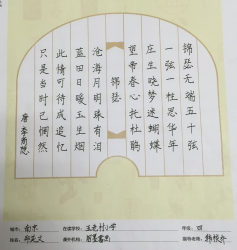 锦瑟无端五十弦
一弦一柱思华年
庄生晓梦迷蝴蝶
望帝春心托杜鹃
锦瑟
沧海月明珠有泪
蓝田日暖玉生烟
此情可待成追忆
只是当时已惘然
唐 李商隐
城市：南京 在读学校：小学 年级：四
姓名： 课外机构： 指导老师：